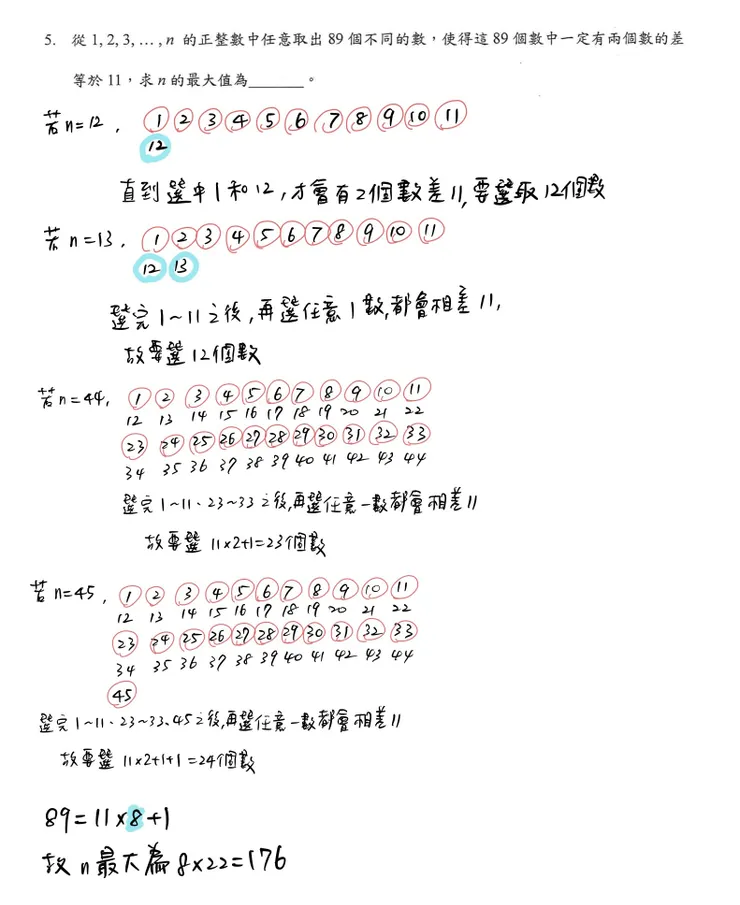 5. 從 1, 2, 3, … , n 的正整數中任意取出 89 個不同的數，使得這 89 個數中一定有兩個數的差
等於 11，求 n 的最大值為______。
若 n=12， 1 2 3 4 5 6 7 8 9 10 11
12
直到選中 1 和 12，才會有 2 個數差 11，要選取 12 個數
若 n=13， 1 2 3 4 5 6 7 8 9 10 11
12 13
選完 1~11 之後，再選任意 1 數，都會相差 11，
故要選 12 個數
若 n=44， 1 2 3 4 5 6 7 8 9 10 11
12 13 14 15 16 17 18 19 20 21 22
23 24 25 26 27 28 29 30 31 32 33
34 35 36 37 38 39 40 41 42 43 44
選完 1~11、23~33 之後，再選任意一數都會相差 11
故要選 11×2+1=23 個數
若 n=45， 1 2 3 4 5 6 7 8 9 10 11
12 13 14 15 16 17 18 19 20 21 22
23 24 25 26 27 28 29 30 31 32 33
34 35 36 37 38 39 40 41 42 43 44
45
選完 1~11、23~33、45 之後，再選任意一數都會相差 11
故要選 11×2+1+1=24 個數
89=11×8+1
故 n 最大為 8×22=176